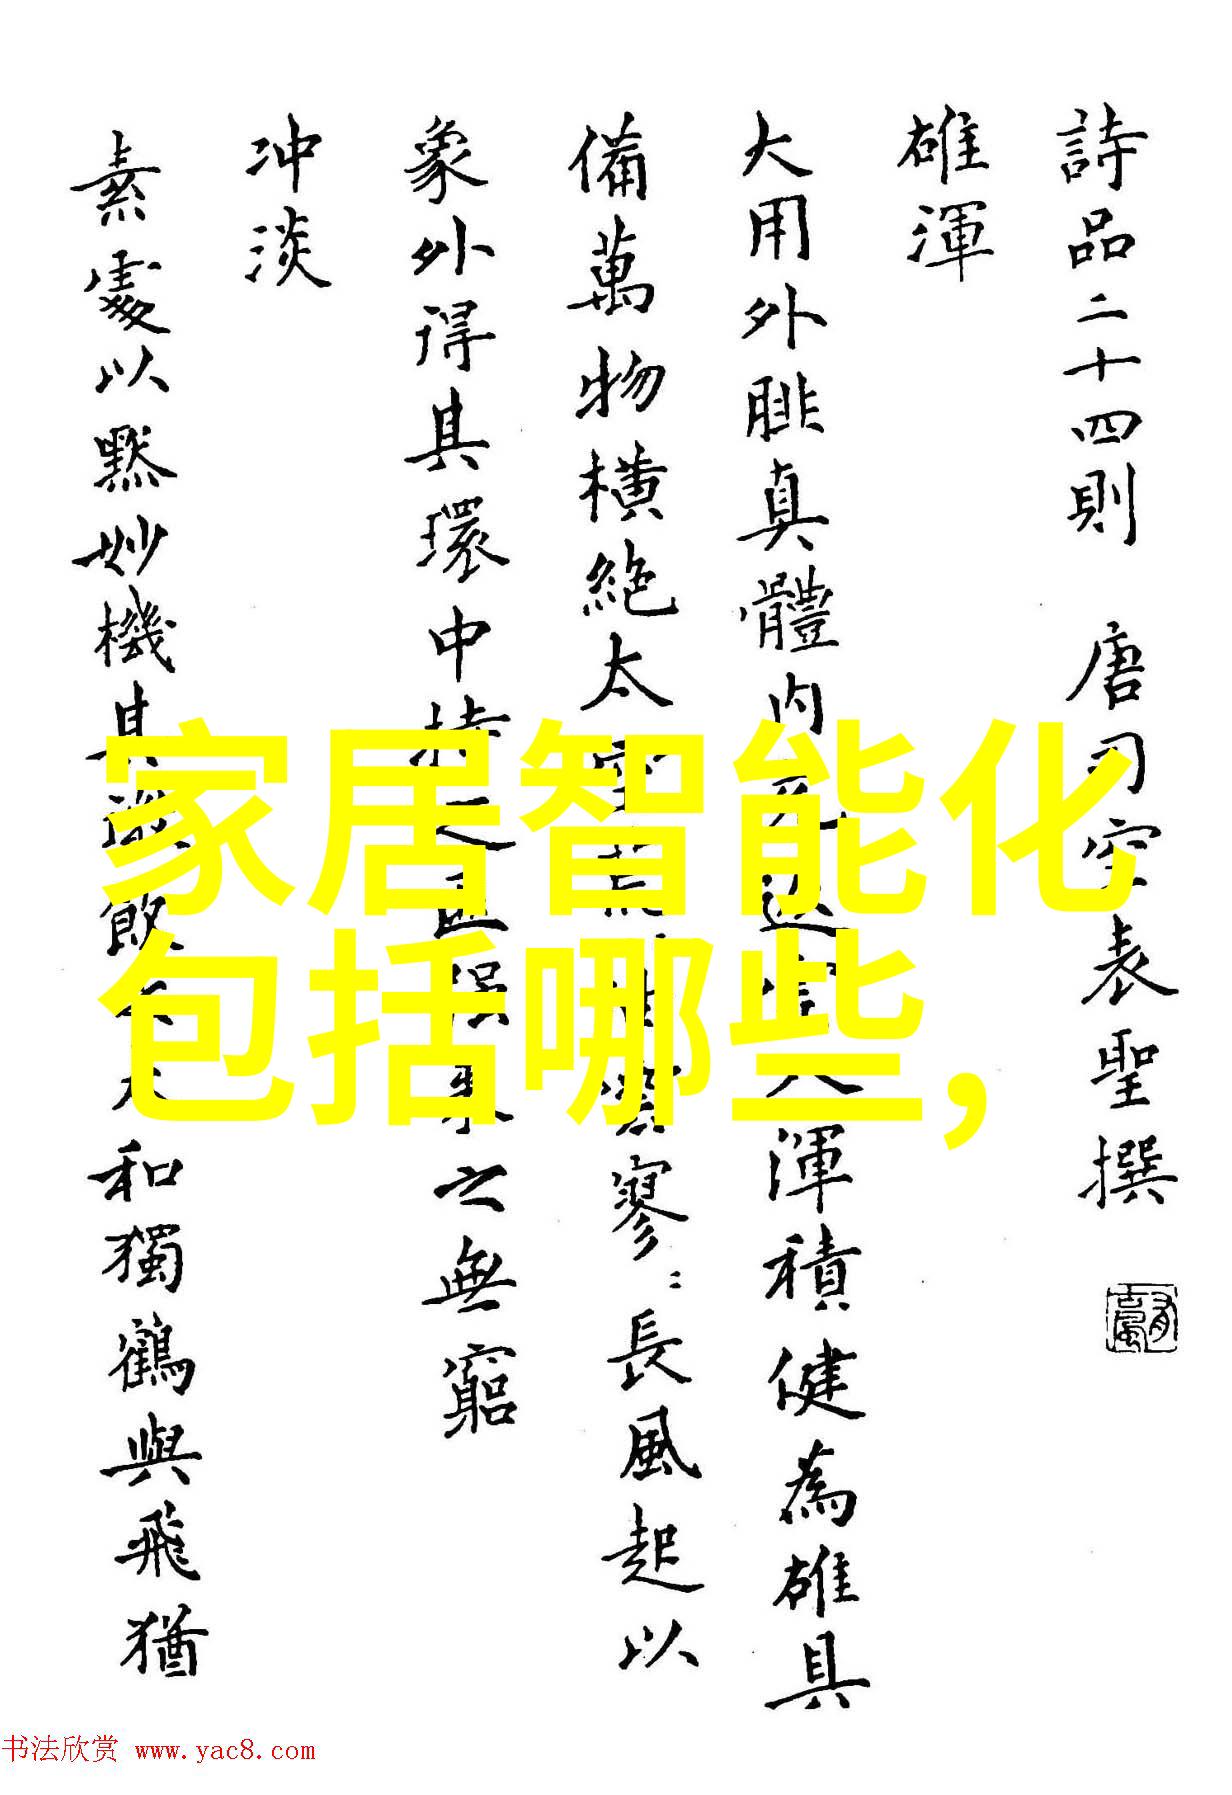 詩品二十四則 唐司空表聖撰
雄渾
大用外腓真體内充返入渾積健為雄具
備萬物橫絕太空寥〻長風起以
象外得其環中持之匪來之無窮
冲淡
素處以黙妙機其微飲太和獨鶴與飛猶
家居智能化
包括哪些,
书法欣赏 www.yac8.com